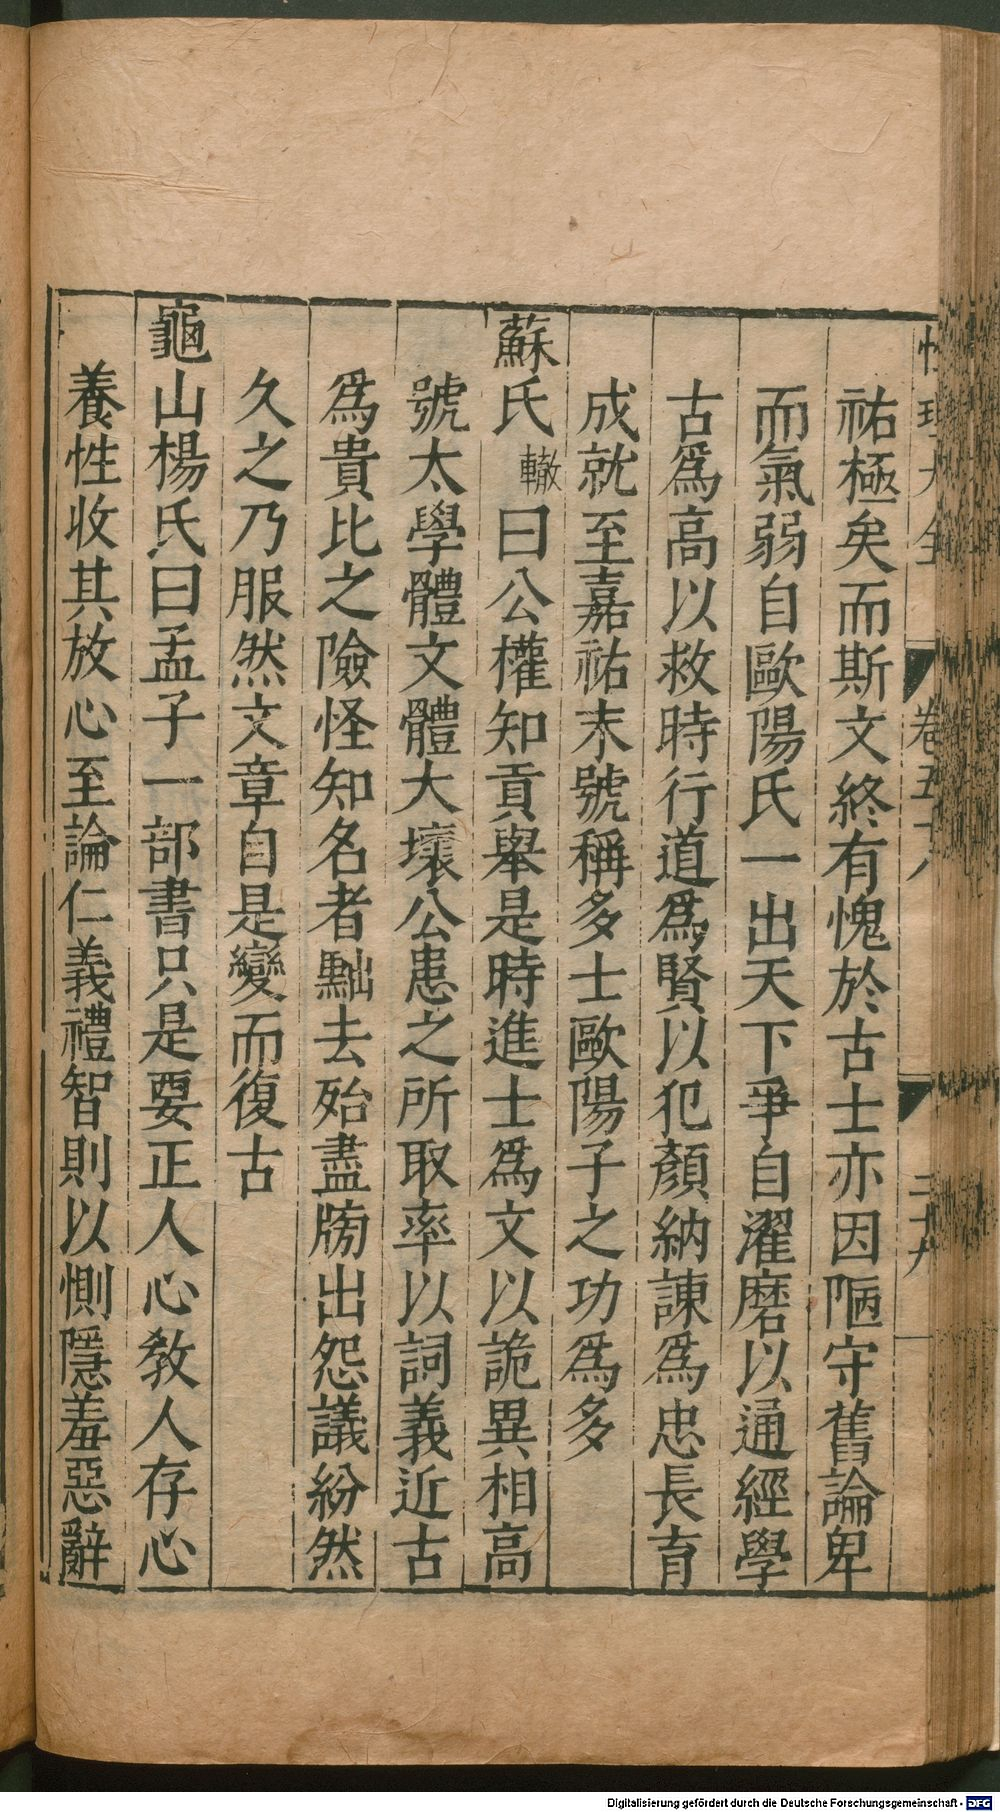 性理大全
卷五十八
三十九
祐極矣而斯文終有愧於古士亦因陋守舊論卑
而氣弱自歐陽氏一出天下爭自濯磨以通經學
古爲高以救時行道爲賢以犯顏納諫爲忠長育
成就至嘉祐末號稱多士歐陽子之功爲多
蘇氏轍曰公權知貢舉是時進士爲文以詭異相高
號太學體文體大壞公患之所取率以詞義近古
爲貴比之險怪知名者黜去殆盡牓出怨議紛然
久之乃服然文章自是變而復古
龜山楊氏曰孟子一部書只是要正人心敎人存心
養性收其放心至論仁義禮智則以惻隱羞惡辭
Digitalisierung gefördert durch die Deutsche Forschungsgemeinschaft - DFG